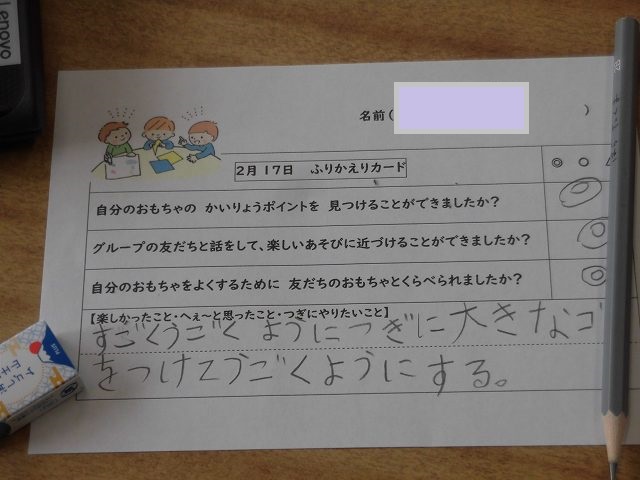 Lenovo
名前( )
2月17日 ふりかえりカード
◎ ○
自分のおもちゃの かいりょうポイントを 見つけることができましたか?
グループの友だちと話をして、楽しいあそびに近づけることができましたか?
自分のおもちゃをよくするために 友だちのおもちゃとくらべられましたか?
【楽しかったこと・へぇ~と思ったこと・つぎにやりたいこと】
すごくうごくようにつぎに大きなゴ
をつけてうごくようにする。
PLUS